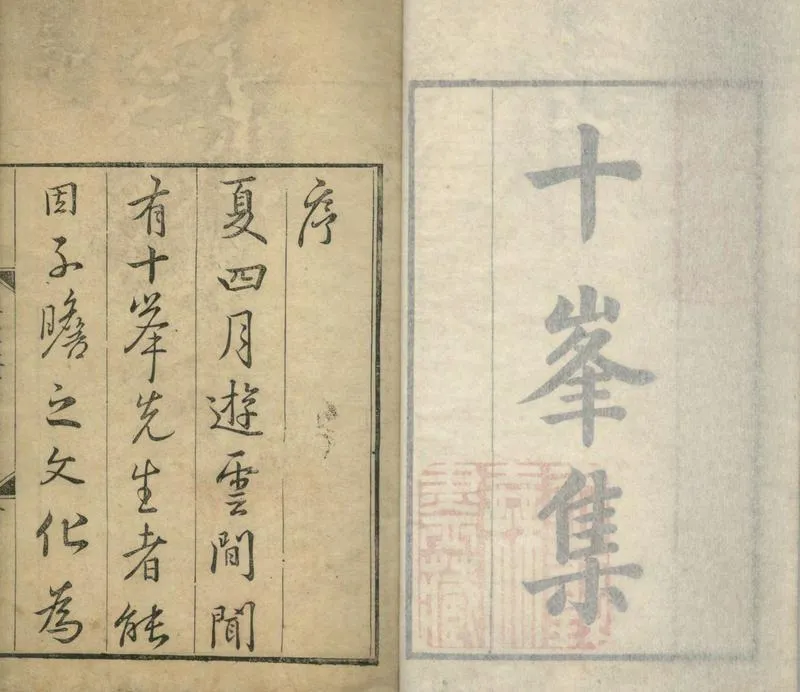 十峯集
序
夏四月遊雲間聞
有十峯先生者能
因子瞻之文化為